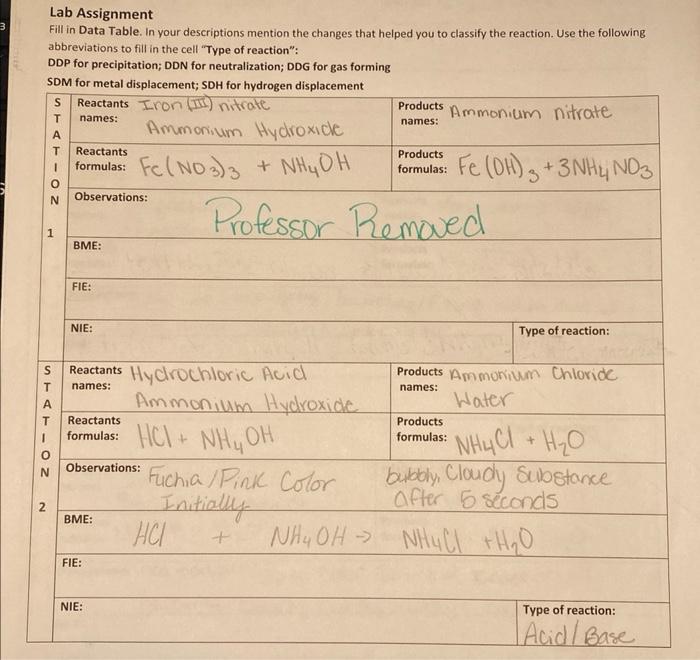 3
Lab Assignment
Fill in Data Table. In your descriptions mention the changes that helped you to classify the reaction. Use the following
abbreviations to fill in the cell "Type of reaction":
DDP for precipitation; DDN for neutralization; DDG for gas forming
SDM for metal displacement; SDH for hydrogen displacement
STATION 1
Reactants names: Iron (III) nitrate
Ammonium Hydroxide
Products names: Ammonium nitrate
Reactants formulas: Fe(NO3)3 + NH4OH
Products formulas: Fe(OH)3 + 3NH4NO3
Observations:
Professor Removed
BME:
FIE:
NIE:
Type of reaction:
STATION 2
Reactants names: Hydrochloric Acid
Ammonium Hydroxide
Products names: Ammonium Chloride
Water
Reactants formulas: HCl + NH4OH
Products formulas: NH4Cl + H2O
Observations: Fuchia/Pink Color
Initially
bubbly, Cloudy Substance
after 5 seconds
BME: HCl + NH4OH → NH4Cl + H2O
FIE:
NIE:
Type of reaction:
Acid/Base